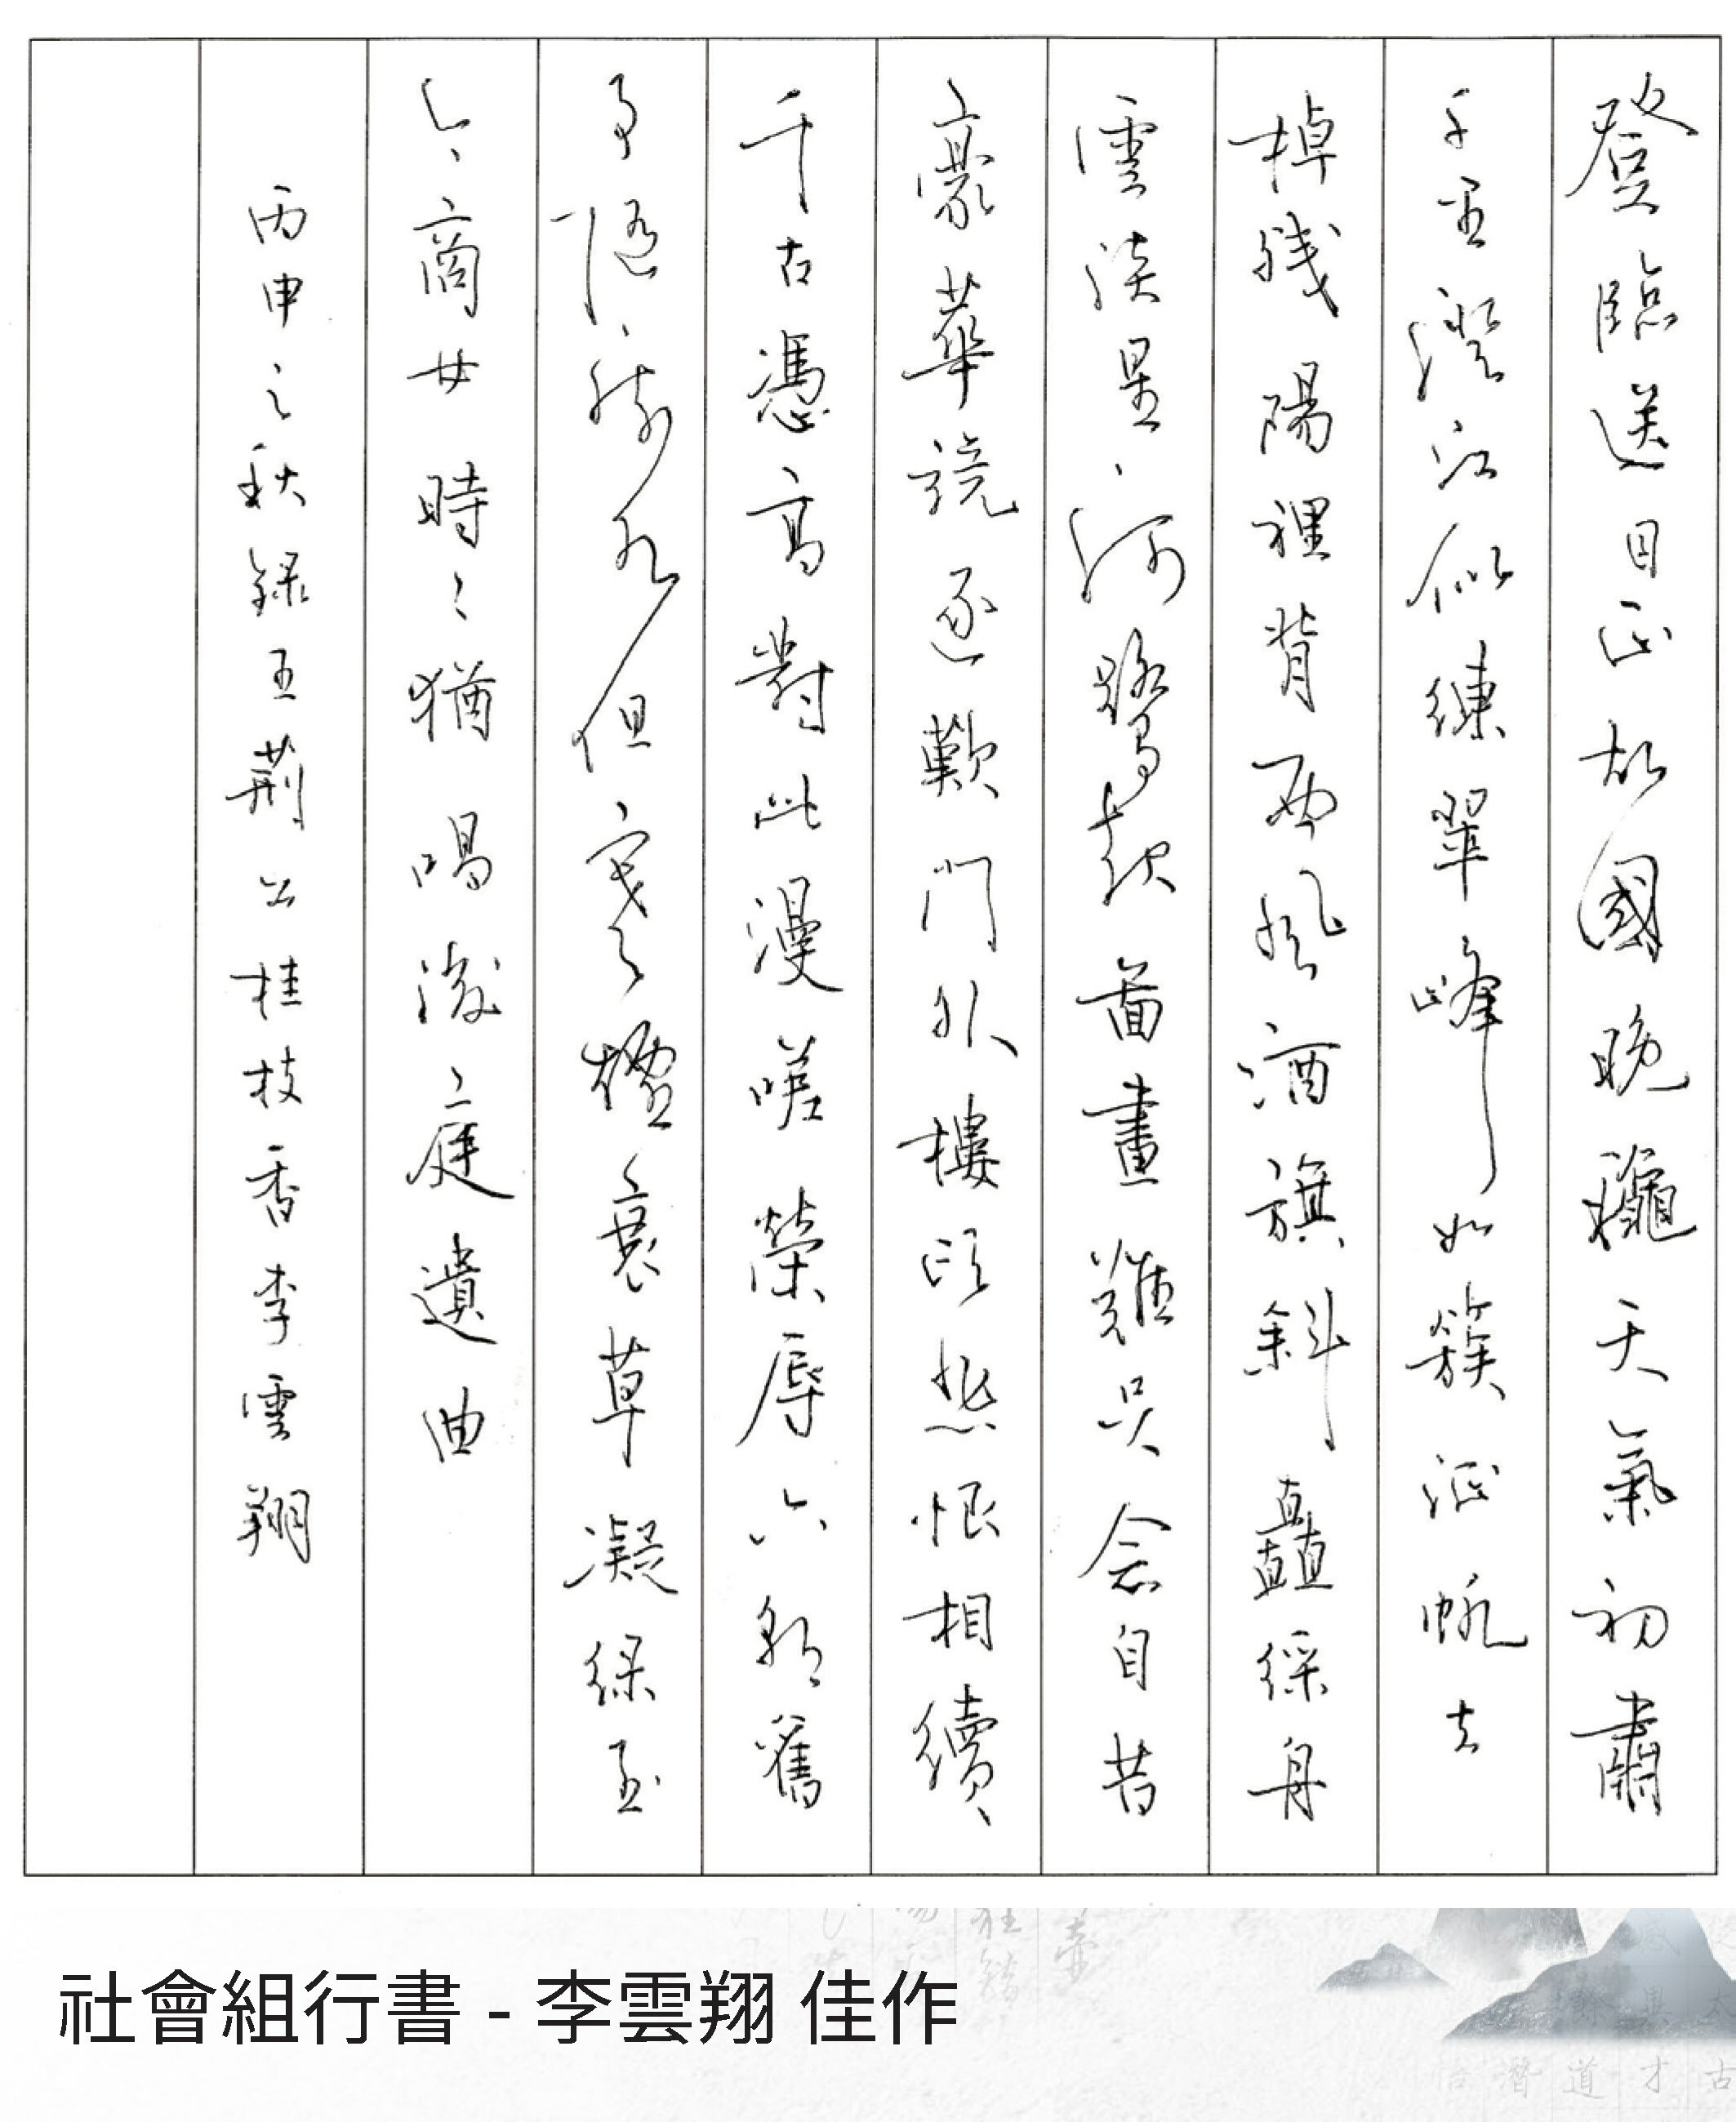 登臨送目正故國晚龝天氣初肅
千里澄江似練翠峰如簇征帆去
棹殘陽裡背西風酒旗斜矗綵舟
雲淡星河鷺起圖畫難足念自昔
豪華競逐歎門外樓頭悲恨相續
千古憑高對此漫嗟榮辱六朝舊
事隨流水但寒煙衰草凝綠至
今商女時々猶唱後庭遺曲
丙申之秋録王荊公桂枝香李雲翔
社會組行書 - 李雲翔 佳作